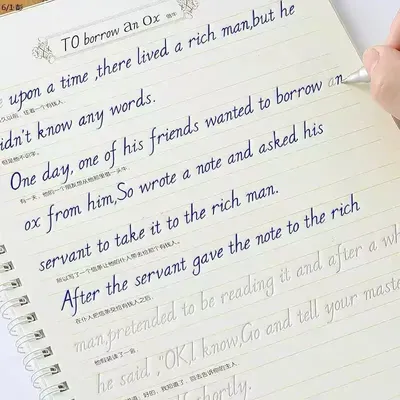 6/1
TO borrow an Ox 借牛
upon a time ,there lived a rich man,but he
久以前，住着一个有钱人，
idn't know any words.
但是他不识字。
One day, one of his friends wanted to borrow an
有一天，他的一个朋友想从他那里借一头牛，
ox from him,So wrote a note and asked his
servant to take it to the rich man.
所以写了一个信条让他的仆人带去给那个有钱人。
After the servant gave the note to the rich
在仆人把信条交给有钱人之后，
man,pretended to be reading it and after a wh
他假装读了一会，
he said ,"OK,I know,Go and tell your maste
好的，我知道了，回去告诉你的主人
shortly.